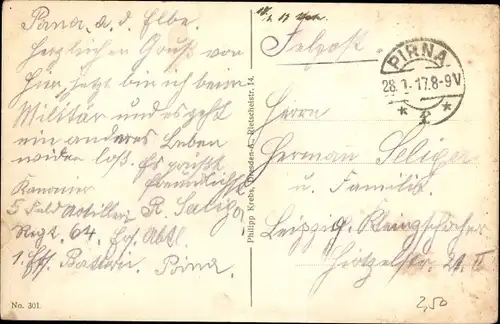 Pirna a. d. Elbe.
Herzlichen Gruß von
hier, jetzt bin ich beim
Militär und es geht
ein anderes Leben
wieder los. Es grüßt
freundlichst
Kanonier R. Selig
5 Feld Artillerie
Regt. 64. Abtl.
1. Batterie. Pirna.
No. 301.
Philipp Krebs, Dresden-A., Rietschelstr. 14.
Feldpost
PIRNA
28.1.17.8-9V
* 2 *
Herrn
Herman Seliger
u. Familie
Leipzig Kleinzschocher
21. II
2,50